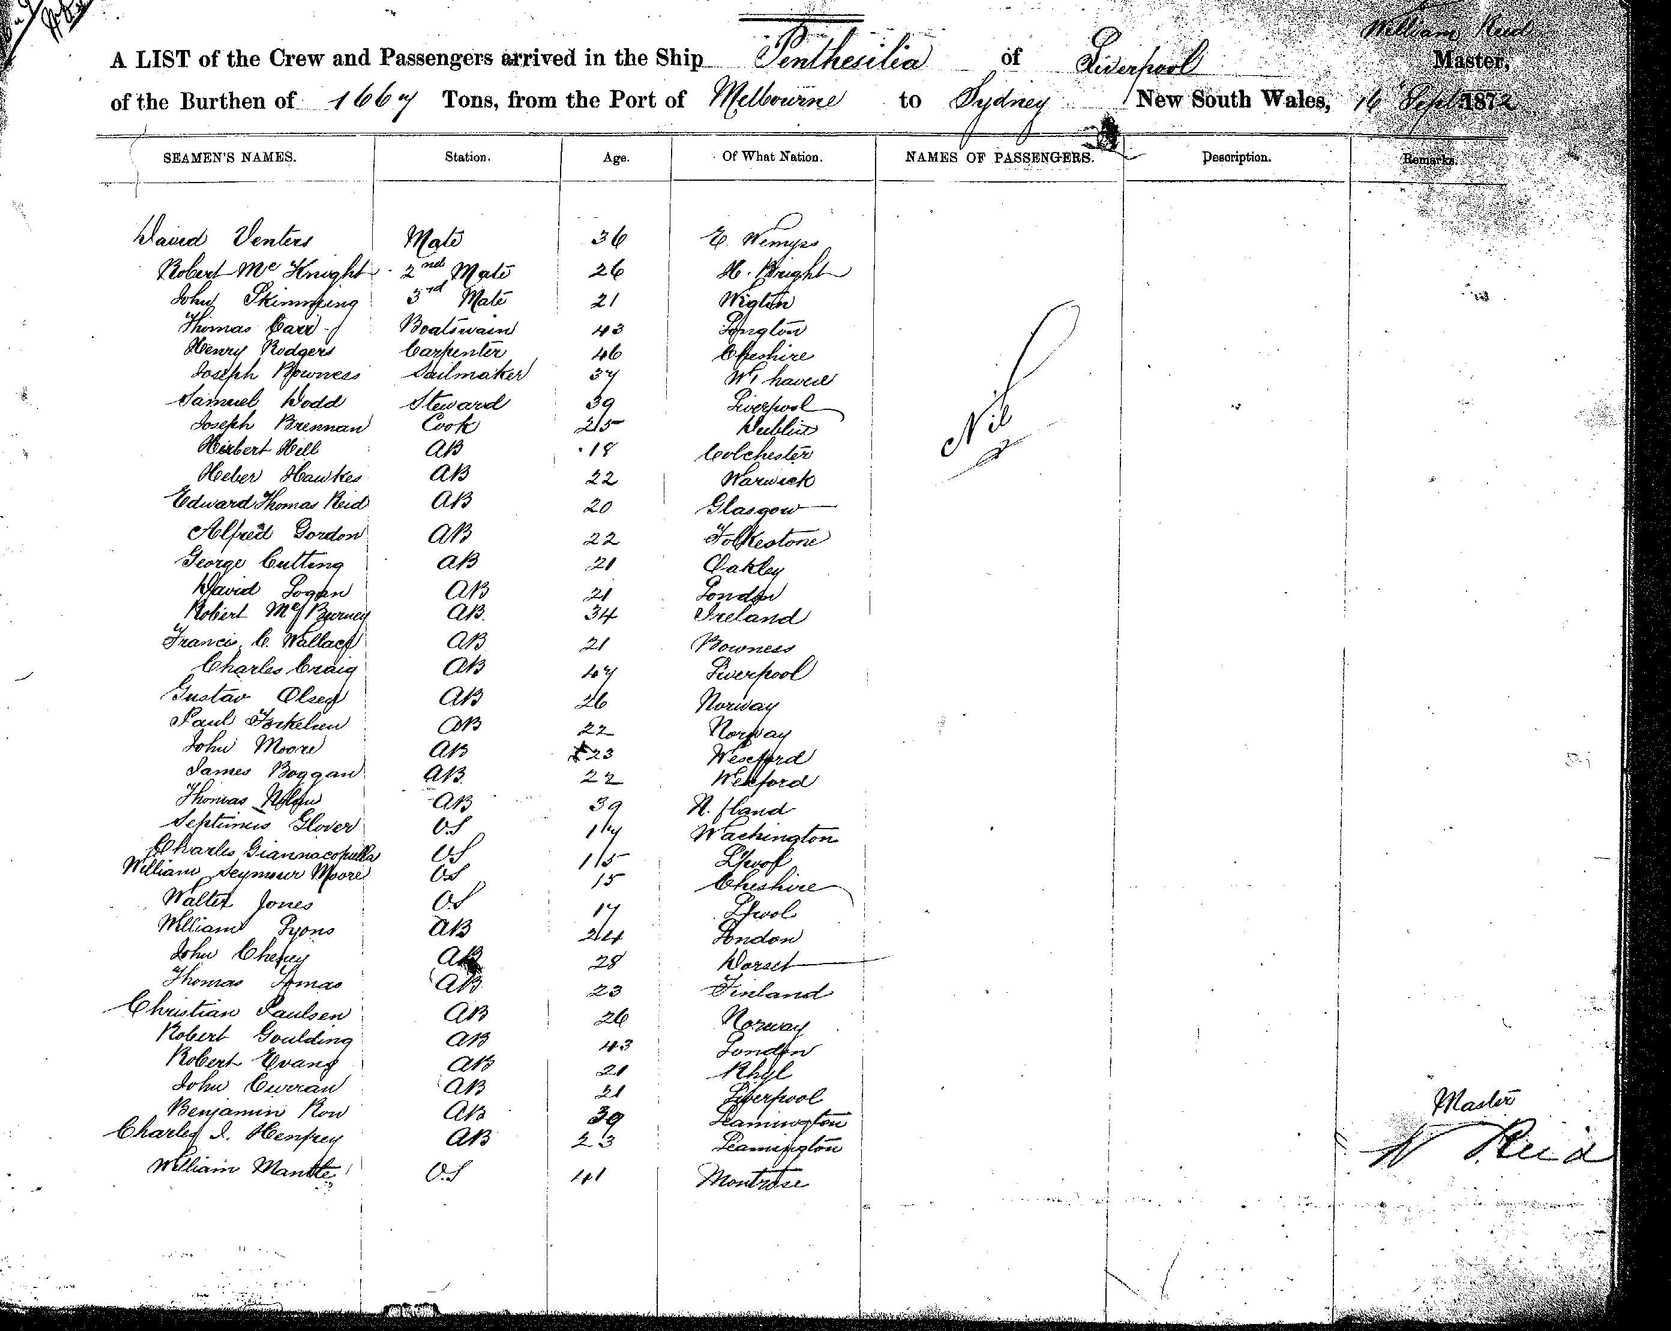 William Reid
A LIST of the Crew and Passengers arrived in the Ship Penthesilia of Liverpool Master,
of the Burthen of 1667 Tons, from the Port of Melbourne to Sydney New South Wales, 16 Sept 1872
SEAMEN'S NAMES. Station. Age. Of What Nation. NAMES OF PASSENGERS. Description. Remarks.
David Venters Mate 36 E. Wemyss
Robert McKnight 2nd Mate 26 H. Bright
John Skimming 3rd Mate 21 Wigton
Thomas Carr Boatswain 43 Longton
Henry Rodgers Carpenter 46 Cheshire
Joseph Bowness Sailmaker 37 Wt haven
Samuel Dodd Steward 39 Liverpool
Joseph Brennan Cook 25 Dublin
Nil
Herbert Hell AB 18 Colchester
Heber Hawkes AB 22 Warwick
Edward Thomas Reid AB 20 Glasgow
Alfred Gordon AB 22 Folkestone
George Cutting AB 21 Oakley
David Logan AB 21 London
Robert McBurney AB 34 Ireland
Francis C. Wallace AB 21 Bowness
Charles Craig AB 47 Liverpool
Gustav Olsen AB 26 Norway
Paul AB 22 Norway
John Moore AB 23 Wexford
James Boggan AB 22 Wexford
Thomas AB 39 N. fland
Septimus Glover OS 17 Washington
Charles Giannacopulla OS 15 L'pool
William Seymour Moore OS 15 Cheshire
Walter Jones OS 17 L'pool
William Lyons AB 24 London
John Cheney AB 28 Dorset
Thomas Tomas AB 23 Finland
Christian Paulsen AB 26 Norway
Robert Goulding AB 43 London
Robert Evans AB 21 Rhyl
John Curran AB 21 Liverpool
Benjamin Row AB 39 Leamington
Charles J. Henfrey AB 23 Leamington
William Mantle OS 41 Montrose
Master
W Reid